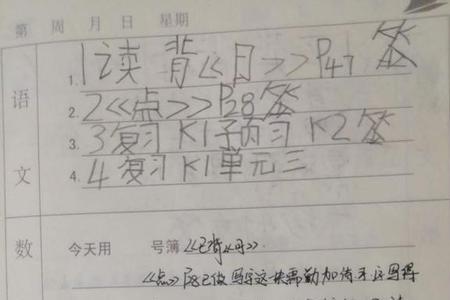 第 周 月 日 星期
语文
1. 1读 背《日》P47 签
2. 2《点》P28签
3. 3复习 K1预习 K2签
4. 4复习 K1单元三
数
今天用 号簿 《已背《日》.
《点》P28已做